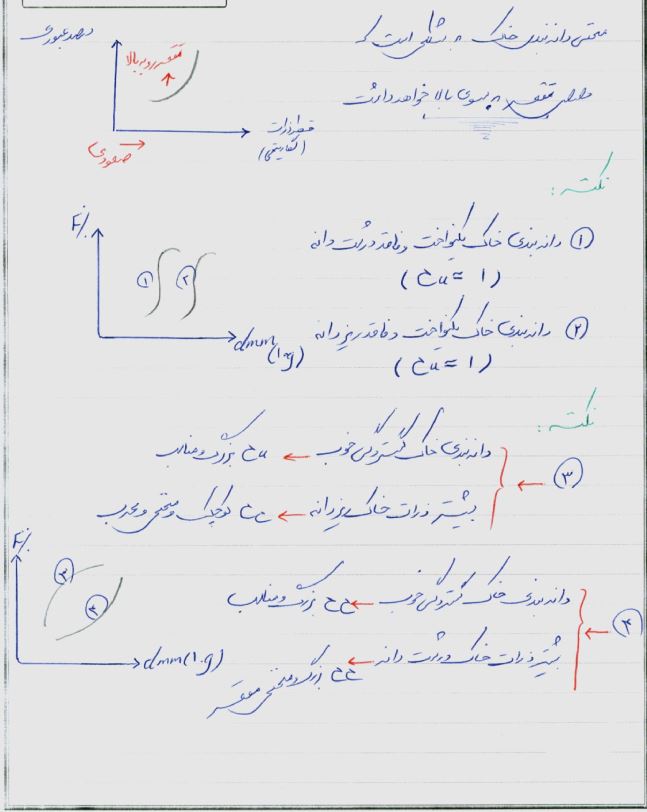 منحنی دانه بندی خاک به شکلی است که
تقعر به سوی بالا خواهد داشت
درصد عبوری
تقعر رو به بالا
قطر ذرات
(لگاریتمی)
صعودی
نکته:
① دانه بندی خاک یکنواخت و فاقد درشت دانه
(Cu ≈ 1)
② دانه بندی خاک یکنواخت و فاقد ریزدانه
(Cu ≈ 1)
F%
① ②
dmm(log)
نکته:
③ ← دانه بندی خاک گستردگی خوب ← Cu بزرگ و مناسب
بیشتر ذرات خاک ریزدانه ← Cc کوچک و منحنی محدب
F%
③
④
dmm(log)
④ ← دانه بندی خاک گستردگی خوب ← Cc بزرگ و مناسب
بیشتر ذرات خاک درشت دانه ← Cc بزرگ و منحنی مقعر